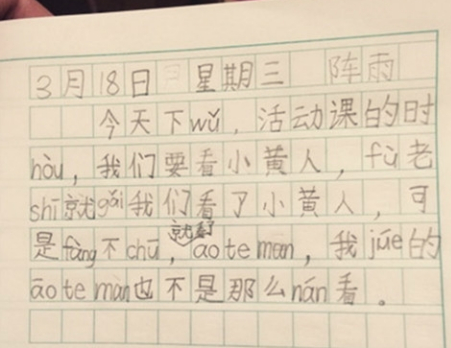 3月18日 星期三 阵雨
今天下wǔ,活动课的时
hòu,我们要看小黄人,fù老
shī就gǎi我们看了小黄人,可
是fàng不chū,就看āo te màn,我júe的
āo te màn也不是那么nán看。